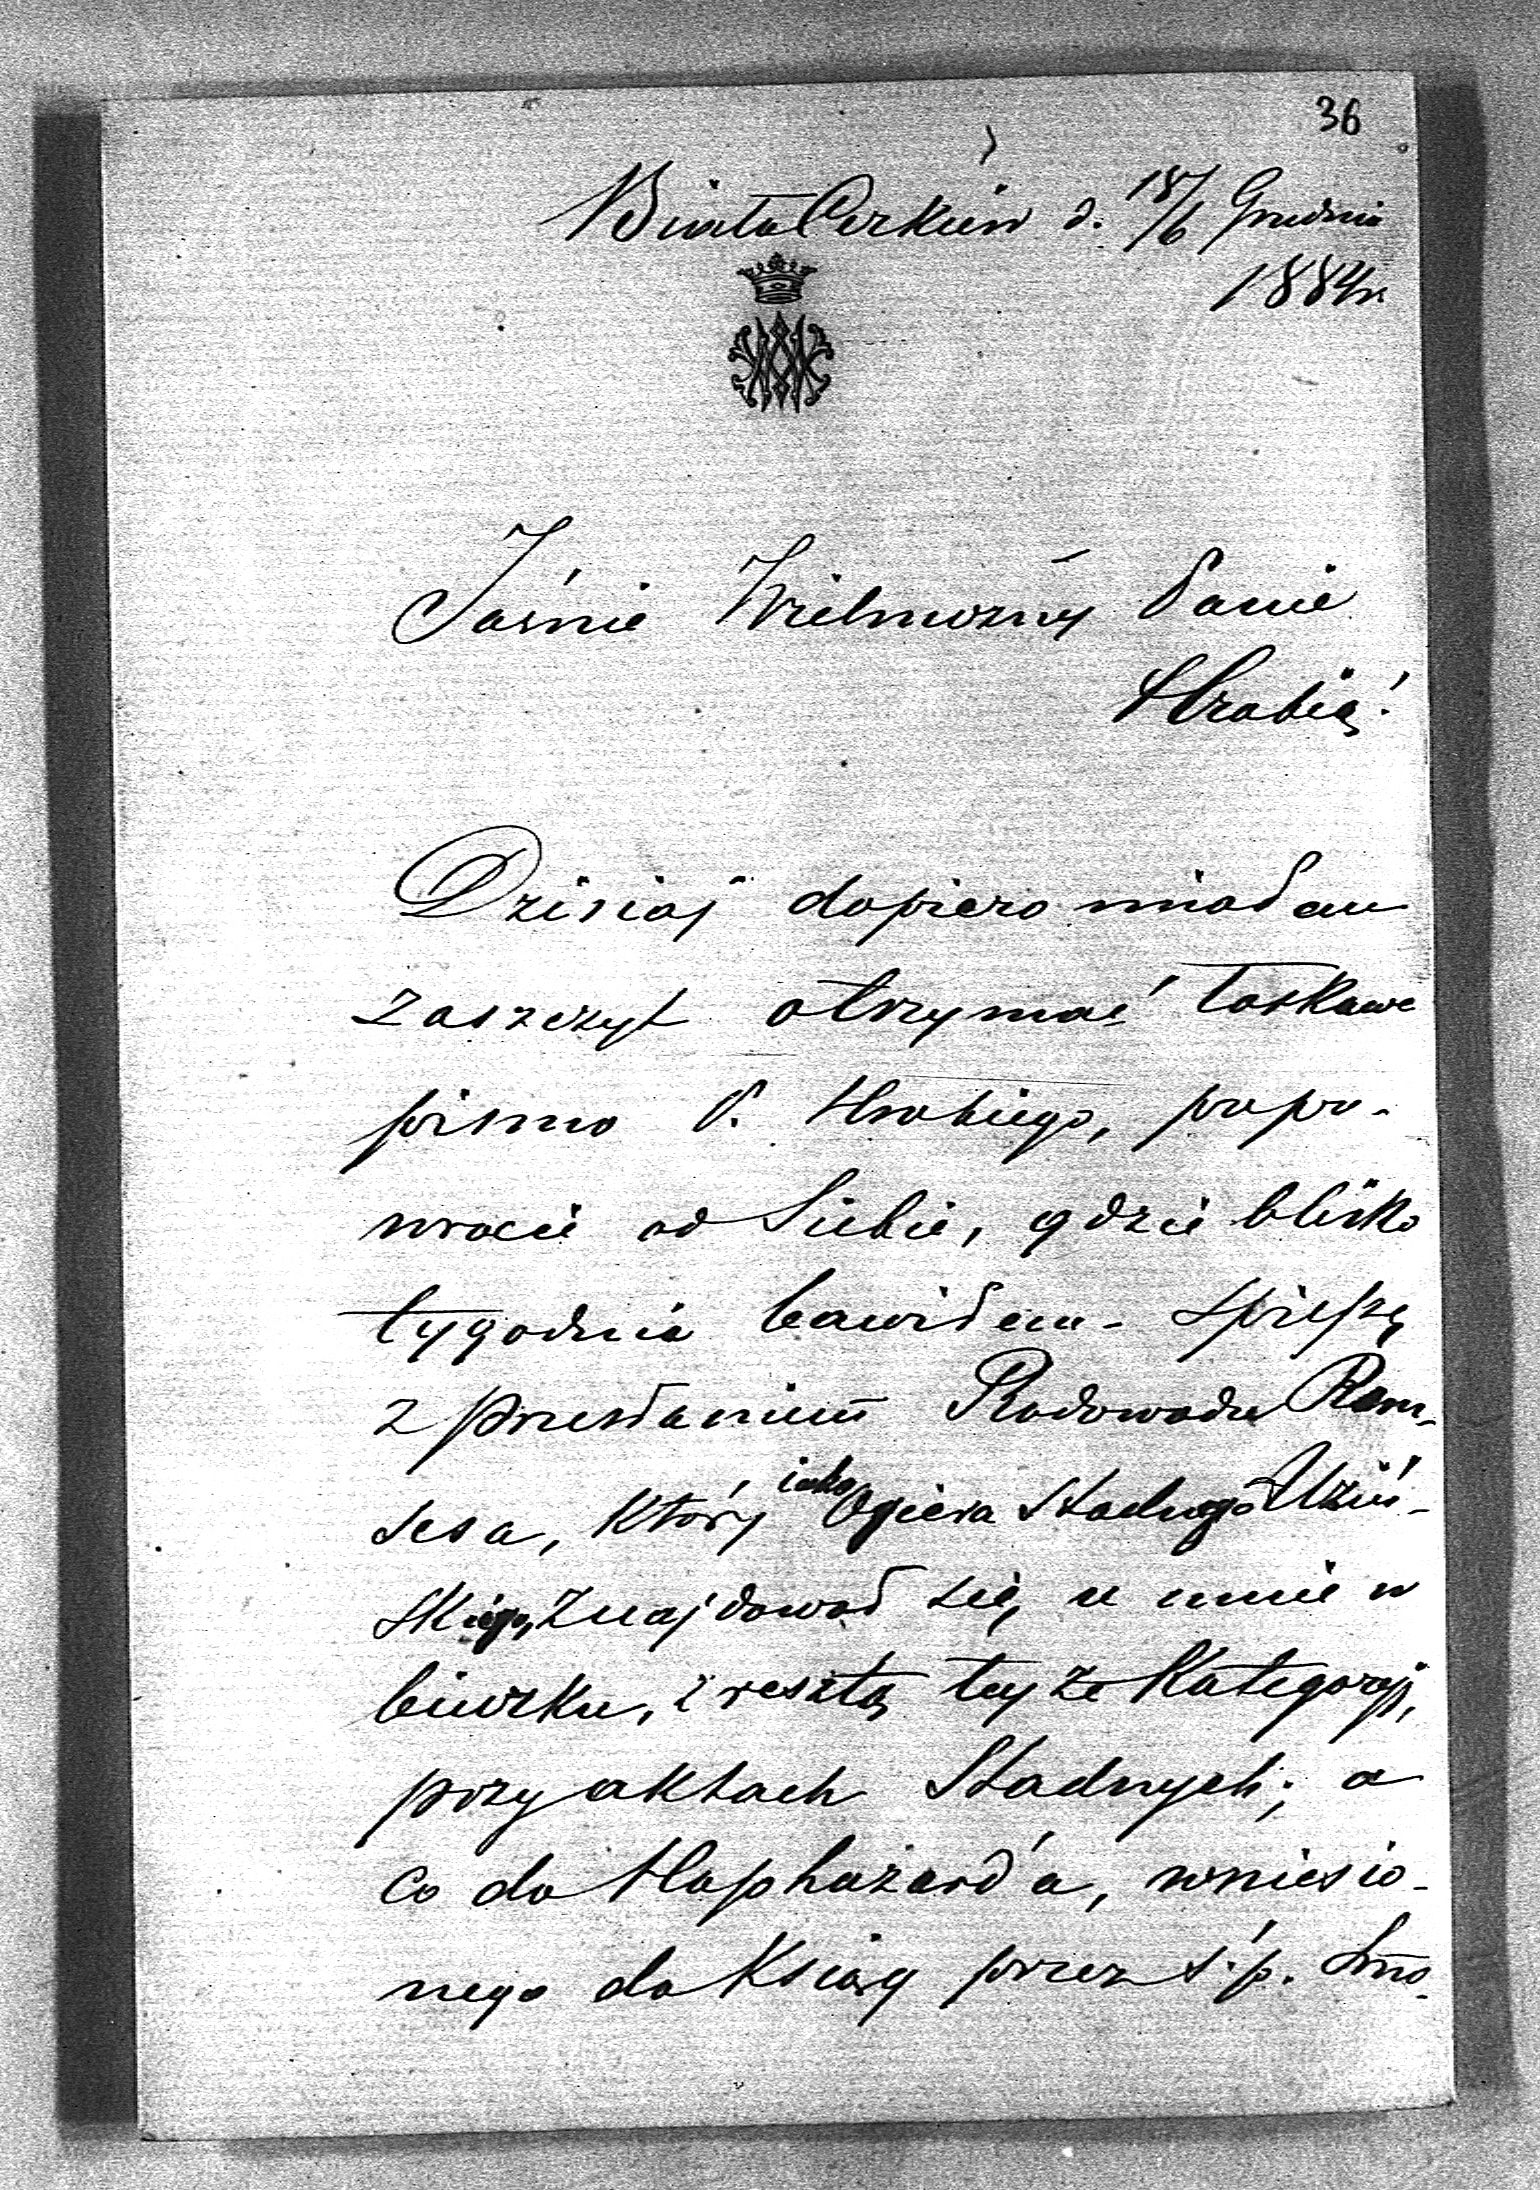 36
Biała Cerkiew d. 18/6 Grudnia
1884 r.
Jaśnie Wielmożny Panie
Hrabią!
Dzisiaj dopiero miałem
zaszczyt otrzymać łaskawe
pismo P. Hrabiego, po po-
wrocie od Siebie, gdzie blisko
tygodnia bawiłem - Spieszę
z przesłaniem Rodowodu Ram-
sesa, który iako Ogiera Stadnego Uziń-
skiego, znajdował się u mnie w
biurku, i resztą tejże Kategoryi,
przy aktach Stadnych; a
co do Haphazard'a, wniesio-
nego do Ksiąg przez ś.p. Smo-